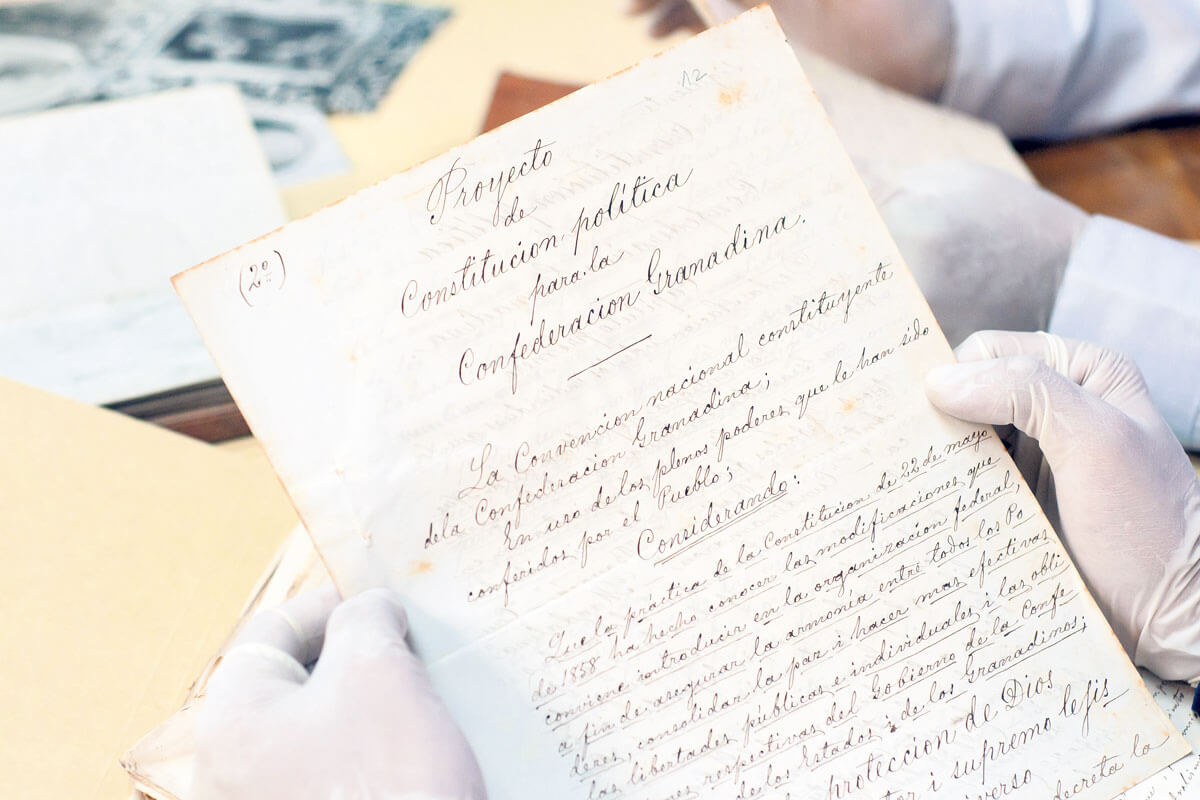 12
(2º)
Proyecto
de
Constitucion política
para la
Confederacion Granadina.
La Convencion nacional constituyente
dela Confederacion Granadina;
En uso de los plenos poderes que le han sido
conferidos por el Pueblo;
Considerando:
Que la práctica de la Constitucion de 22 de mayo
de 1858 ha hecho conocer las modificaciones que
conviene introducir en la organizacion federal,
a fin de asegurar la armonía entre todos los Po
deres, consolidar la paz i hacer mas efectivas
las libertades públicas e individuales i las obli
respectivas del Gobierno de la Confe
de los Estados i de los Granadinos;
proteccion de Dios
i supremo lejis
decreta la